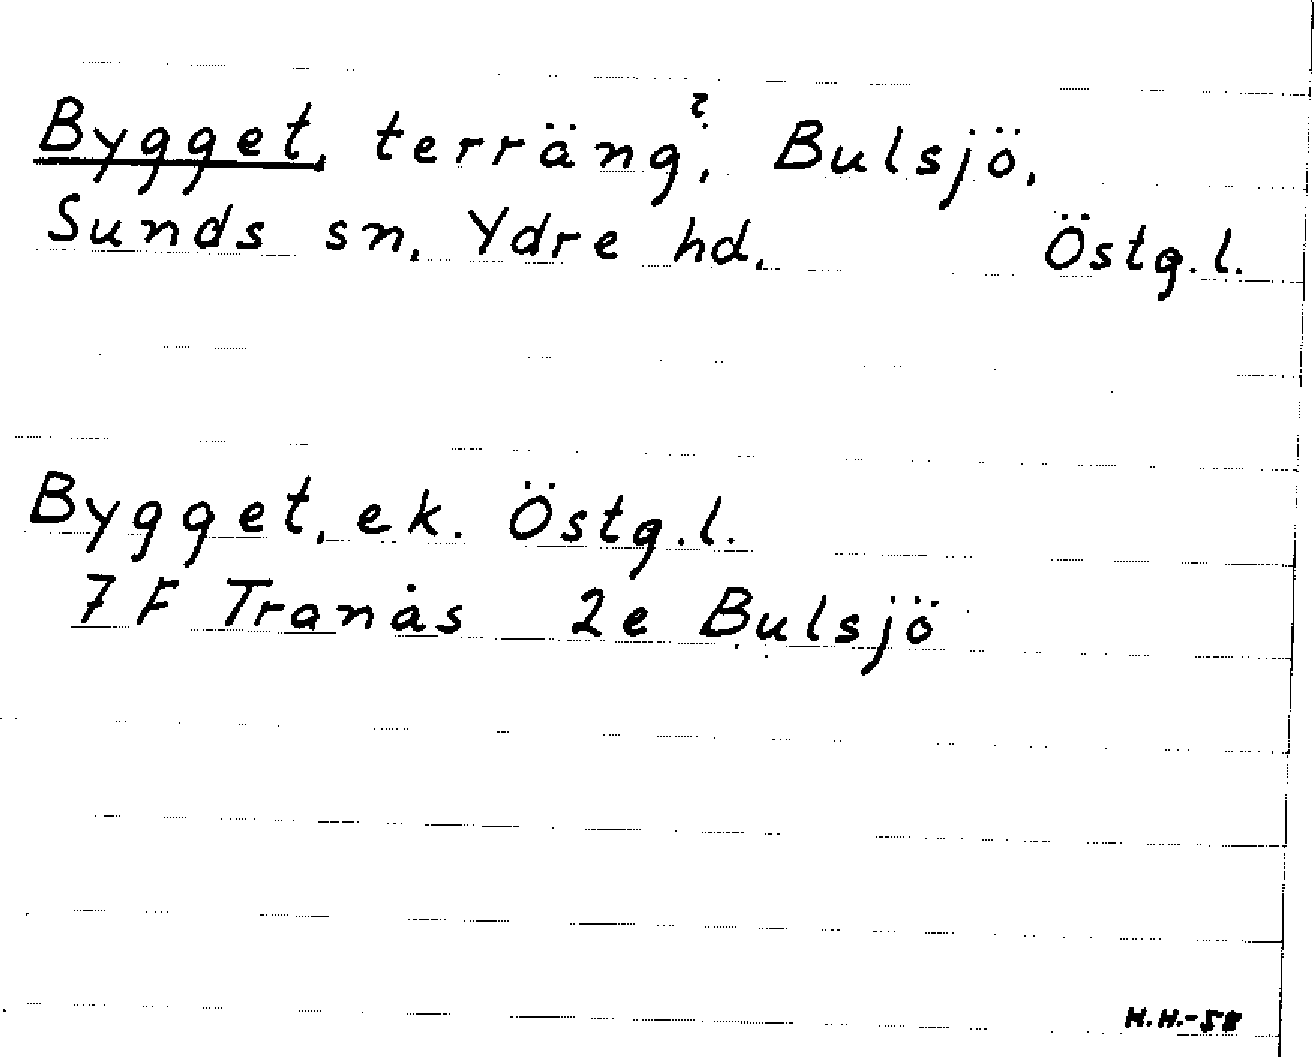 Bygget, terräng?, Bulsjö,
Sunds sn, Ydre hd, Östg.l.
Bygget, ek. Östg.l.
7F Tranås 2e Bulsjö
H.H.-58